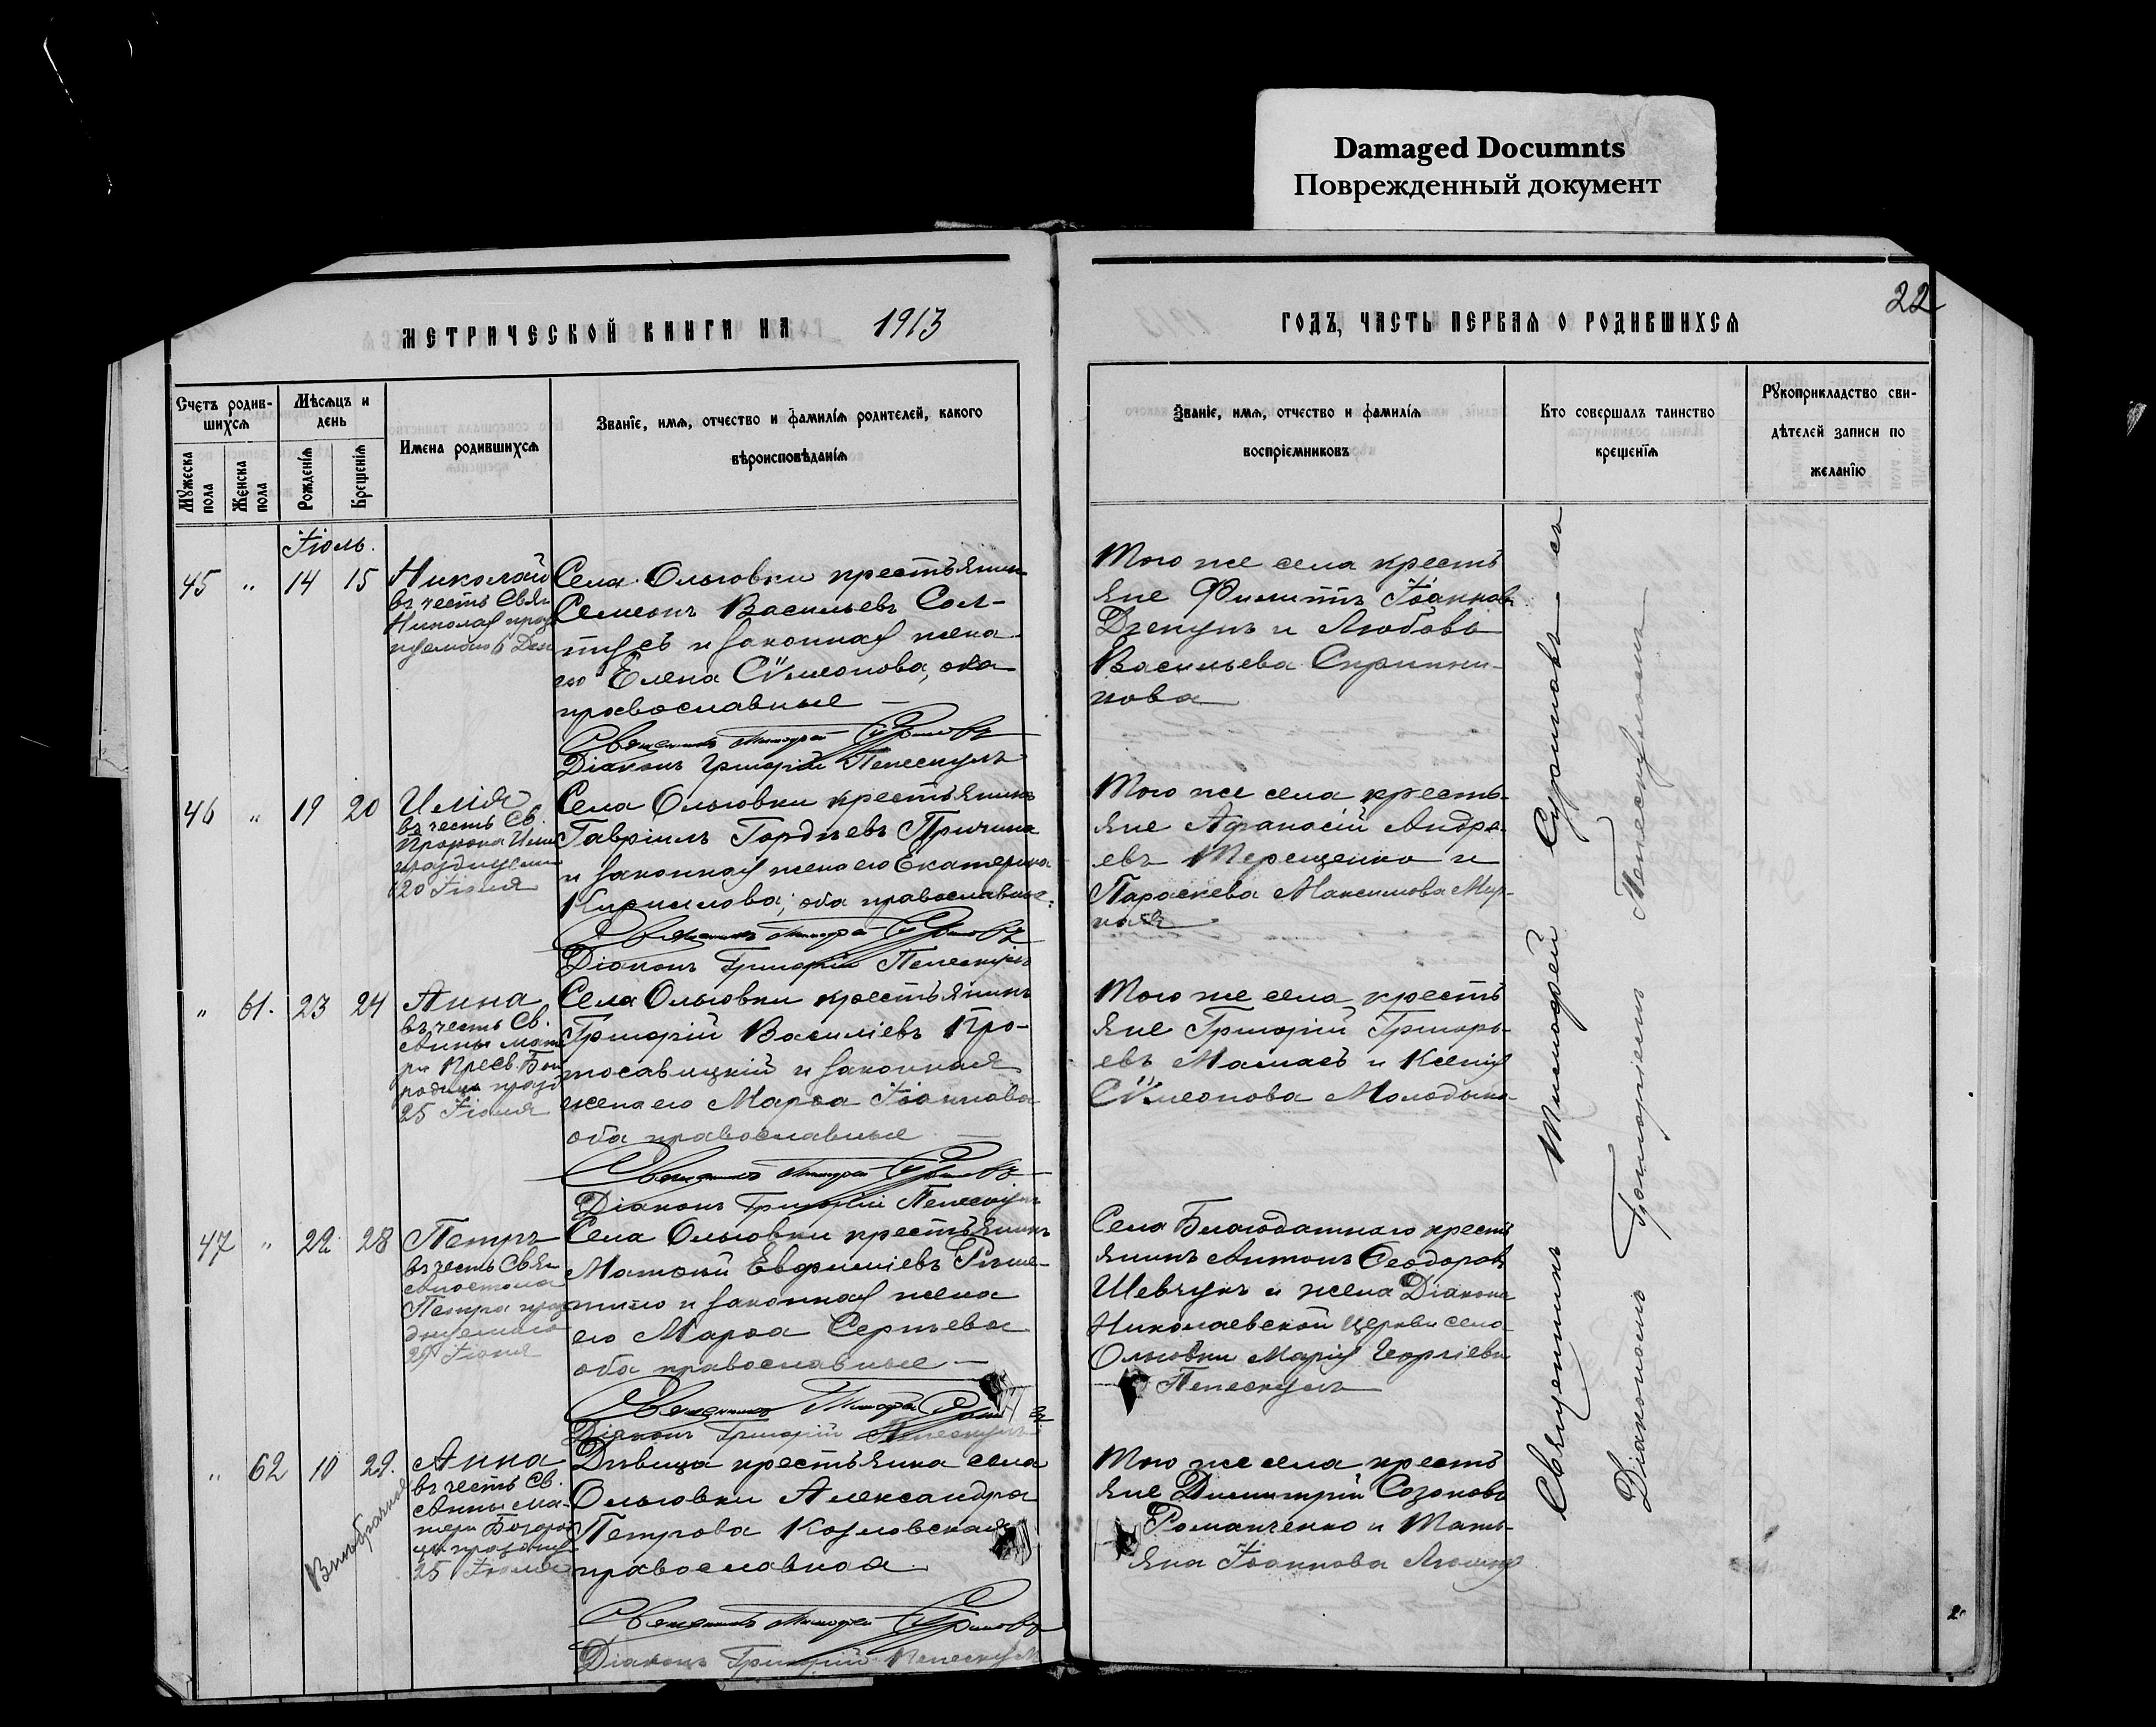 Damaged Documnts
Поврежденный документ
22
МЕТРИЧЕСКОЙ КНИГИ НА 1913
ГОДЪ, ЧАСТЬ ПЕРВАЯ О РОДИВШИХСЯ
Счетъ родив-
шихся
Мужеска
пола
Женска
пола
Мѣсяцъ и
день
Рожденїя
Крещенїя
Имена родившихся
Званїе, имя, отчество и фамилїя родителей, какого
вѣроисповѣданїя
Званїе, имя, отчество и фамилїя
воспрїемниковъ
Кто совершалъ таинство
крещенїя
Рукоприкладство сви-
дѣтелей записи по
желанїю
Іюль.
45 " 14 15
Николай
въ честь Свят
Николая праз
6 Дек
Села Ольговки крестьянинъ
Семеонъ Васильевъ Сол-
и законная жена
его Елена Сѵмеонова, оба
православные
Священникъ Тимофей
Діаконъ Григорій Пелескулъ
Того же села кресть
яне Филиппъ Іоанновъ
и Любовь
Васильева Скрипни-
кова
46 " 19 20
Илія
въ честь Св.
Пророка Иліи
празднуем
20 Іюля
Села Ольговки крестьянинъ
Гавріилъ Гордѣевъ Причина
и законная жена его Екатерина
Кириллова; оба православные.
Священникъ Тимофей
Діаконъ Григорій Пелескулъ
Того же села кресть-
яне Афанасій Андре-
евъ Терещенко и
Параскева Максимова Мир-
ная
" 61. 23 24
Анна
въ честь Св.
Анны мате
ри Пресв. Бого
родицы празд
25 Іюля
Села Ольговки крестьянинъ
Григорій Василіевъ Про-
тосавицкій и законная
жена его Марѳа Іоаннова
оба православные
Священникъ Тимофей
Діаконъ Григорій Пелескулъ
Того же села кресть
яне Григорій Григорь-
евъ Мамаевъ и Ксенія
Сѵмеонова Молодыка
47 " 22 28
Петръ
въ честь Свят
Апостола
Петра праз
днуемаго
29 Іюня
Села Ольговки крестьянинъ
Матѳій Евфиміевъ Рѣше-
тило и законная жена
его Марѳа Сергѣева
оба православные
Священникъ Тимофей
Діаконъ Григорій Пелескулъ
Села Благодатнаго кресть
янинъ Антонъ Ѳеодоровъ
Шевчукъ и жена Діакона
Николаевской церкви села
Ольговки Марія Георгіева
Пелескулъ
" 62 10 29.
Внѣбрачное
Анна
въ честь Св.
Анны ма-
тери Богоро
цы праздну
25 Іюля
Дѣвица крестьянка села
Ольговки Александра
Петрова Козловская
православная.
Священникъ Тимофей
Діаконъ Григорій Пелескулъ
Того же села кресть
яне Димитрій Созоновъ
Романченко и Тать-
яна Іоаннова
Священникъ Тимофей съ
Діакономъ Григоріемъ Пелескуломъ